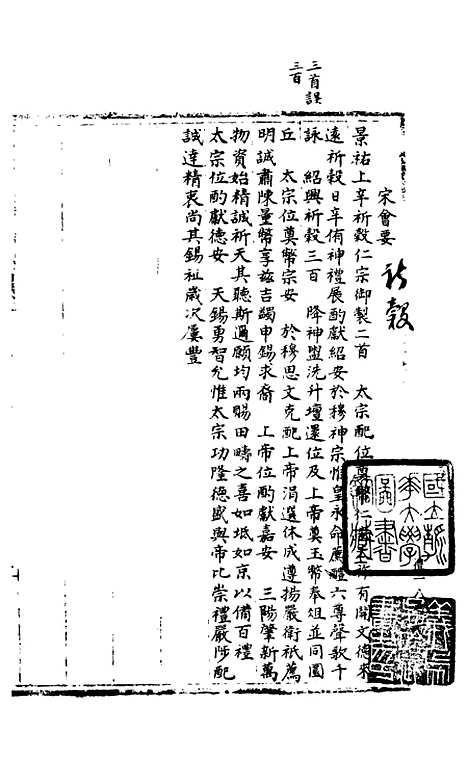 三首誤
三百
宋會要
祈穀
景祐上辛祈穀仁宗御製二首 太宗配位奠幣仁安 有開文德來
遠祈穀日辛侑神禮展酌獻紹安於穆神宗惟皇永命薦醴六尊聲歌千
詠 紹興祈穀三百 降神盥洗升壇還位及上帝奠玉幣奉俎並同圜
丘 太宗位奠幣宗安 於穆思文克配上帝涓選休成遵揚嚴衛祇薦
明誠肅陳量幣享茲吉蠲申錫求裔 上帝位酌獻嘉安 三陽肇新萬
物資始精誠祈天其聽斯邇願均雨暘田疇之喜如坻如京以備百禮
太宗位酌獻德安 天錫勇智允惟太宗功隆德盛與帝比崇禮嚴陟配
誠達精衷尚其錫祉歲次屢豐